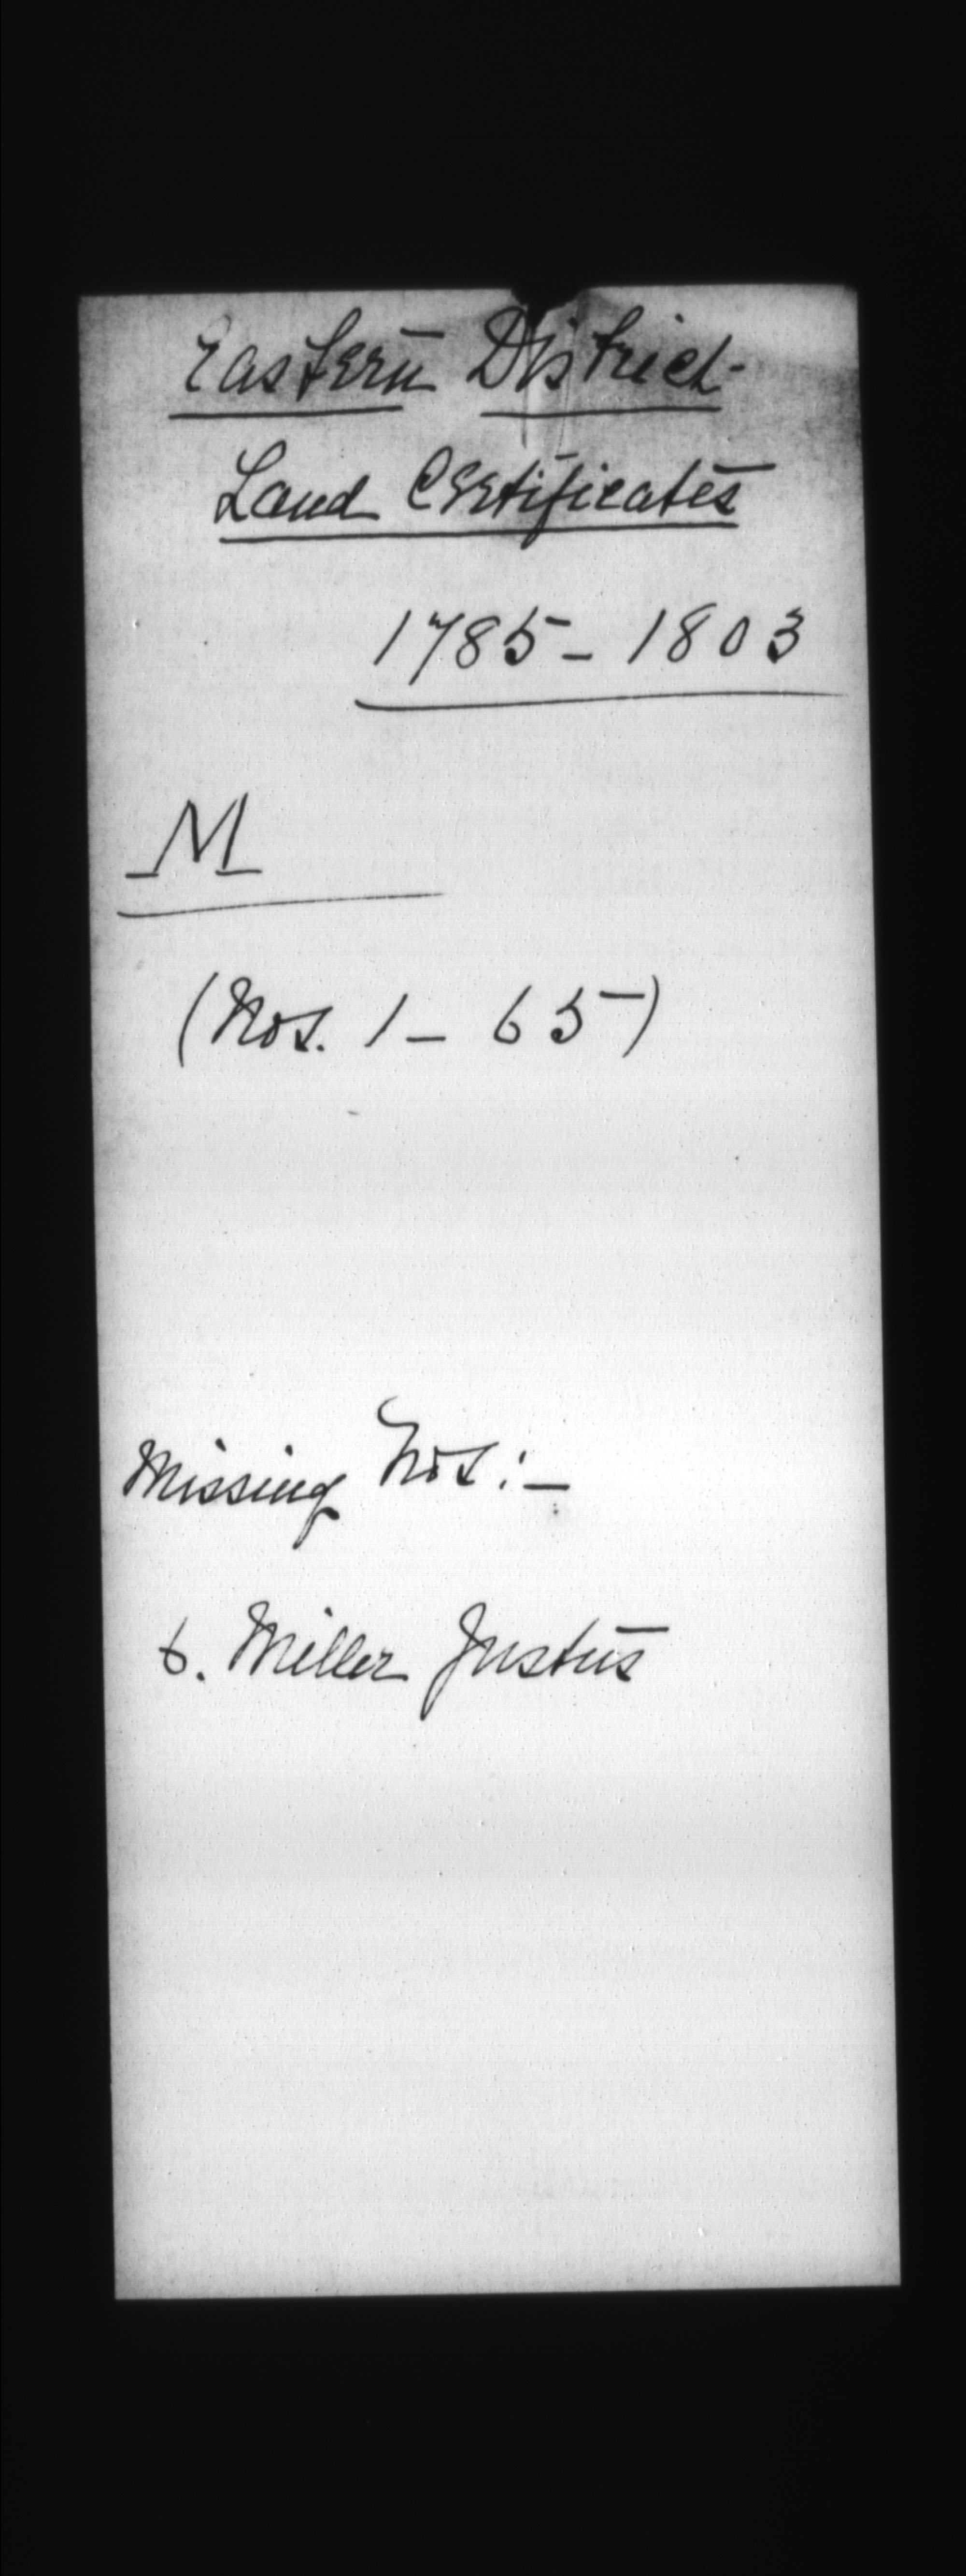 Eastern District
Land Certificates
1785 - 1803
M
(Nos. 1 - 65)
Missing Nos:-
6. Miller Justus